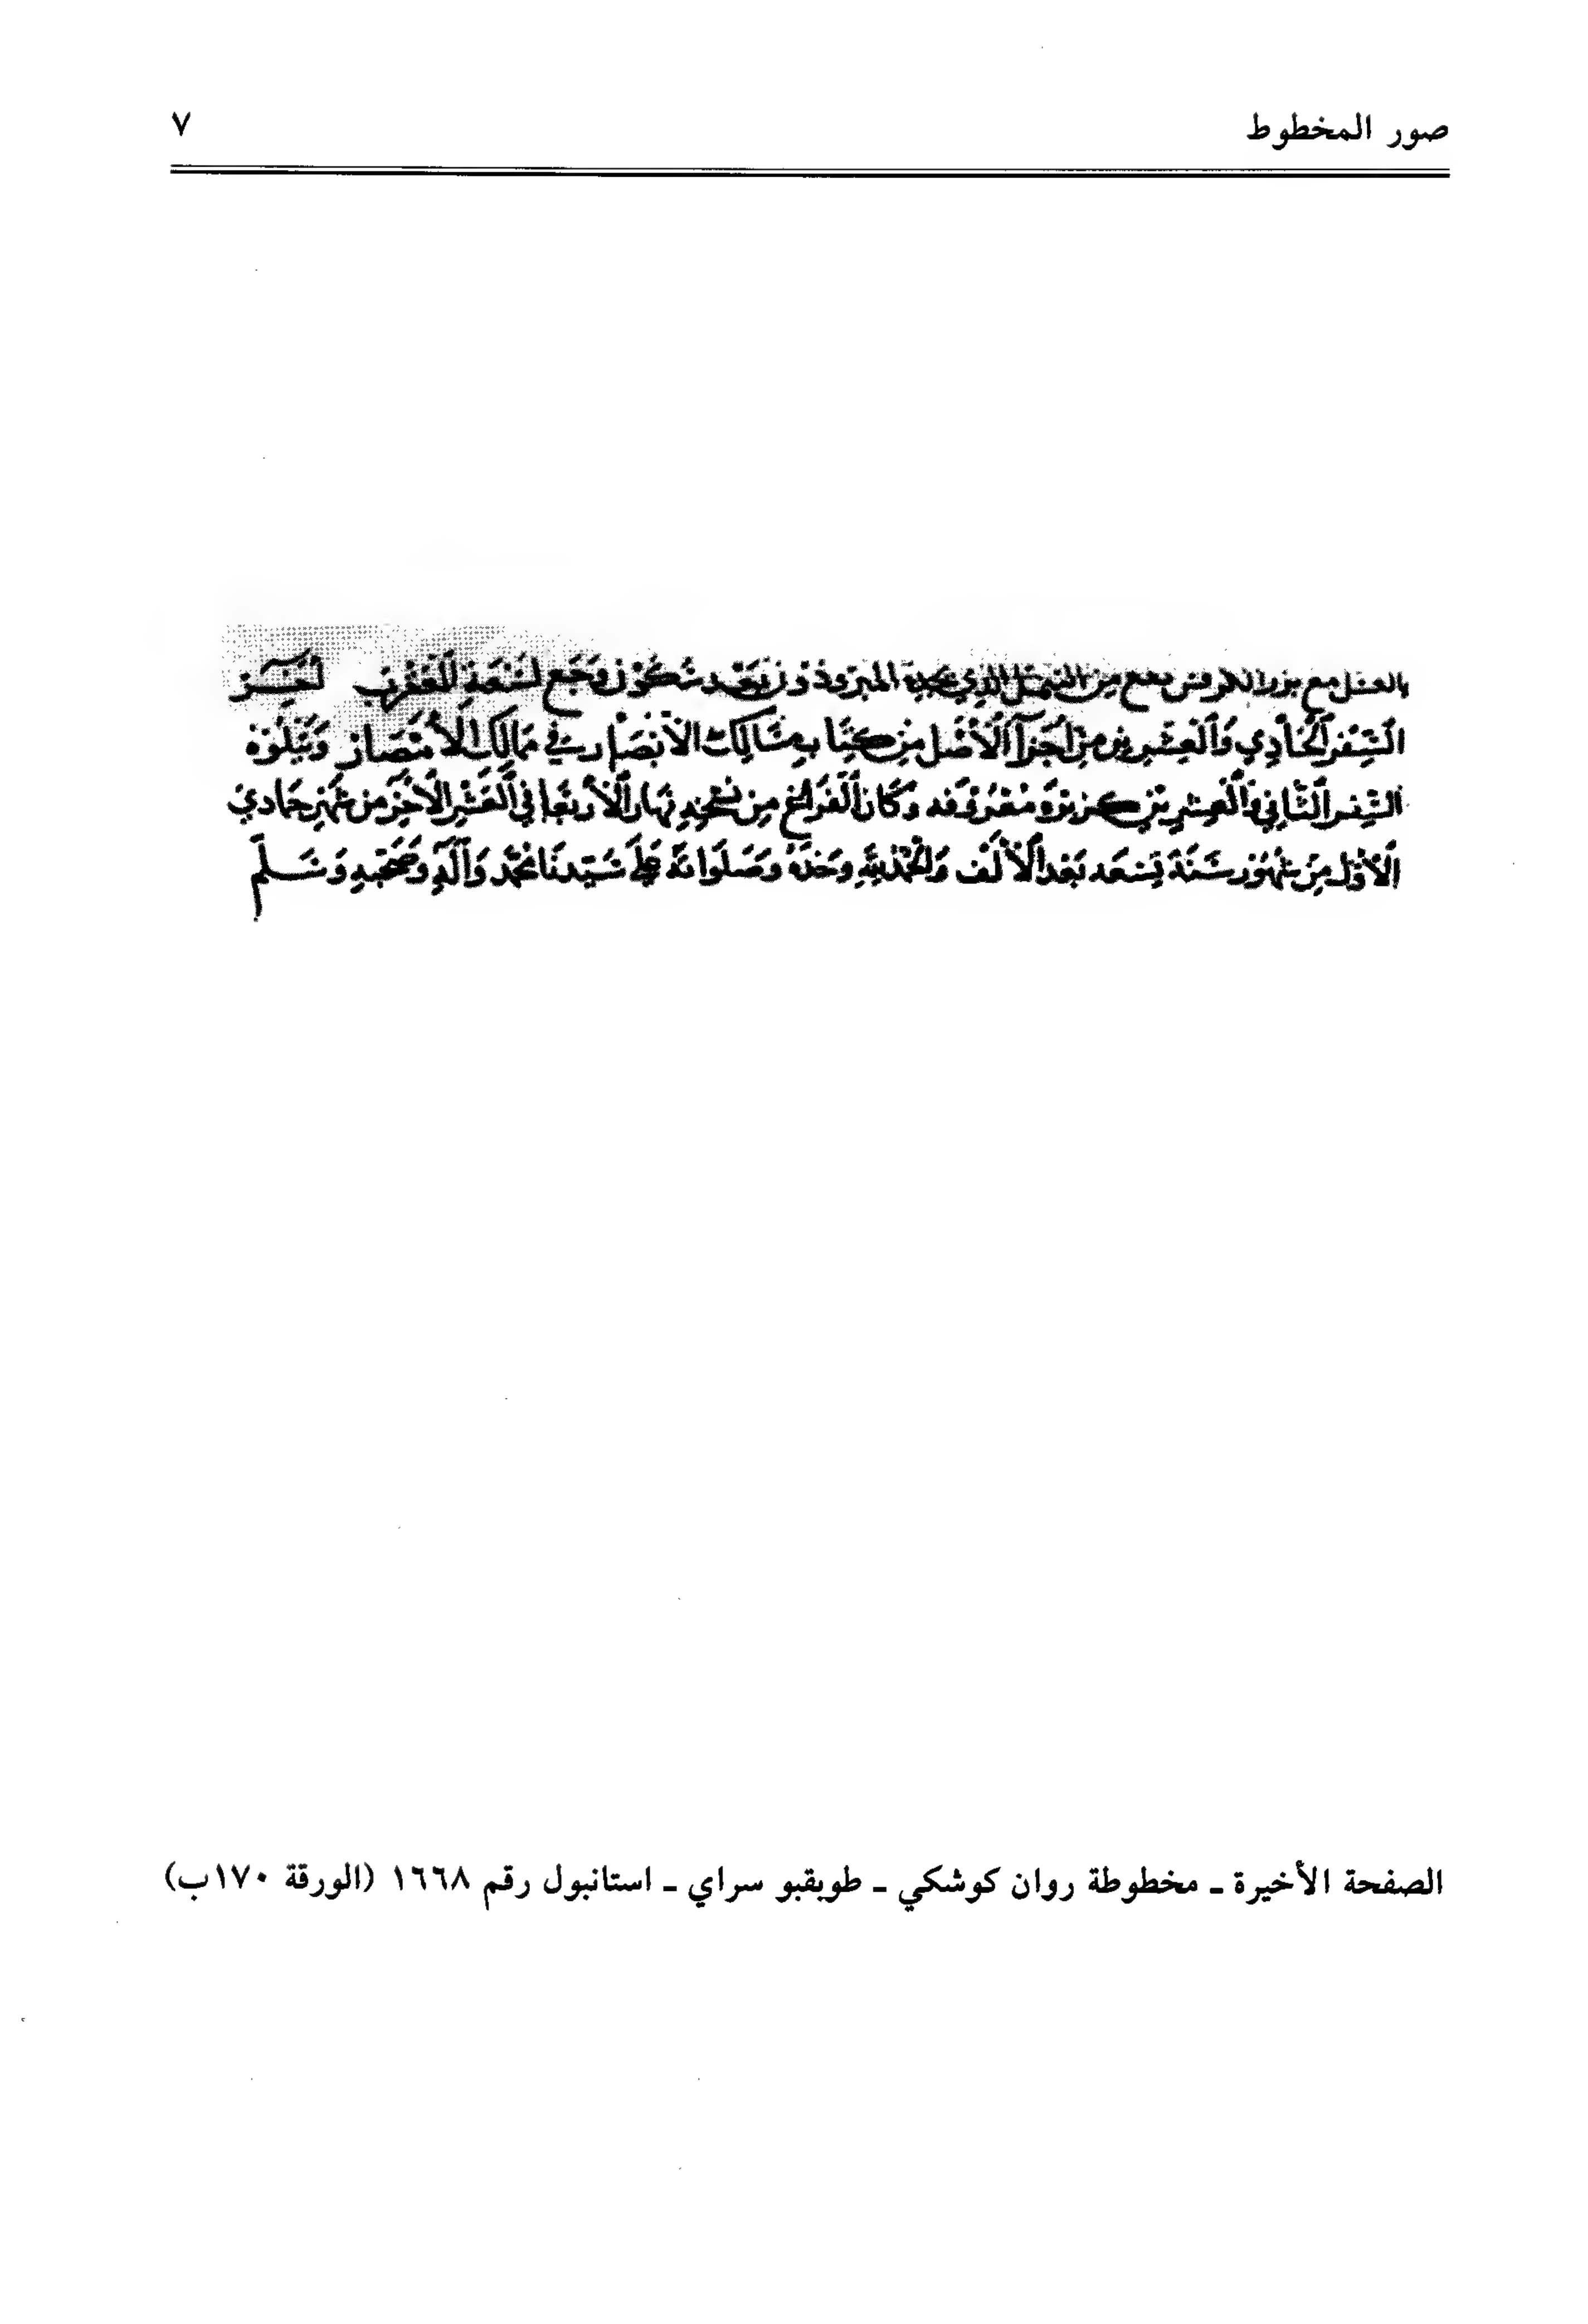 صور المخطوط
٧
بالعسل مع بزر الكرفس نفع من الذي المبرود وزن بعد سكون وجع لسعة العقرب
السفر الحادي والعشرين من اجزآ الاصل من كتاب مسالك الابصار في ممالك الامصار ويتلوه
السفر الثاني والعشرين كزبره معروفه وكان الفراغ من نهار الاربعا في العشر الاخر من شهر جمادي
الاول من شهور سنة تسعه بعد الالف والحمد لله وحده وصلواته على سيدنا محمد وآله وصحبه وسلم
الصفحة الأخيرة ـ مخطوطة روان كوشكي ـ طوبقبو سراي ـ استانبول رقم ١٦٦٨ (الورقة ١٧٠ب)